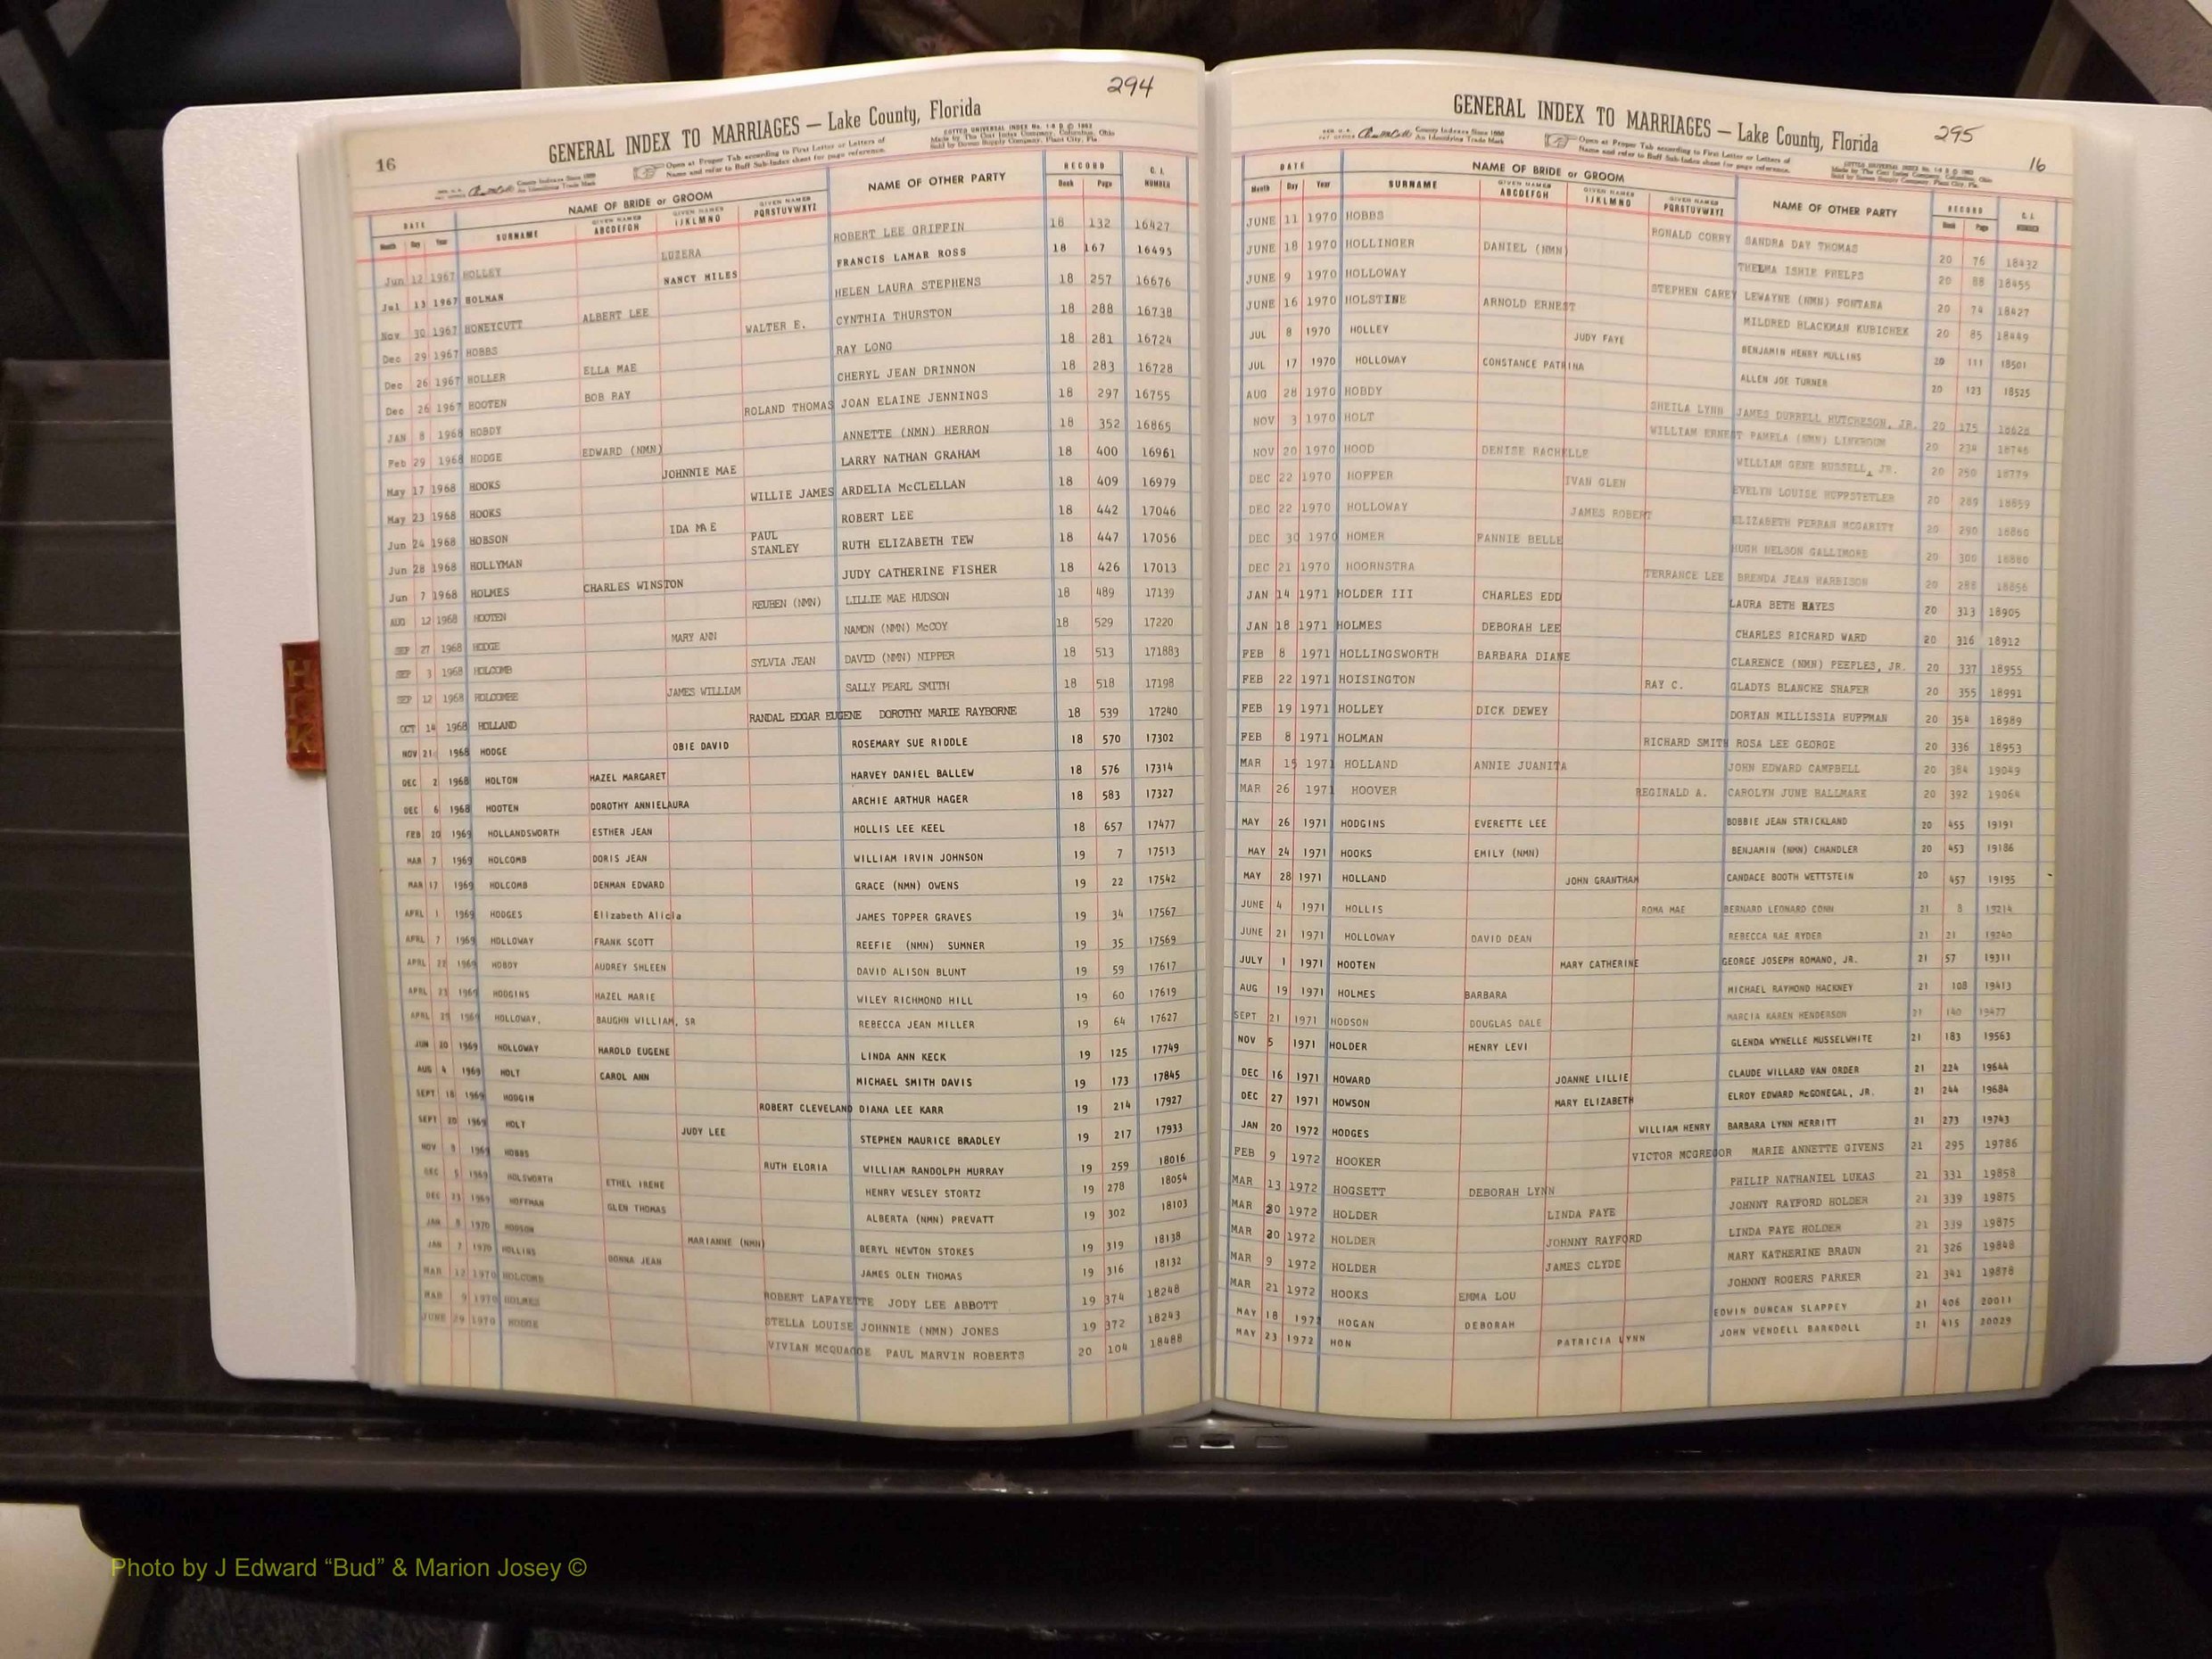 294
16
GENERAL INDEX TO MARRIAGES — Lake County, Florida
County Indexes Since 1888
An Identifying Trade Mark
Open at Proper Tab according to First Letter or Letters of
Name and refer to Buff Sub-Index sheet for page reference.
COTT CO UNIVERSAL INDEX
Made by The Cott Index Company, Columbus, Ohio
DATE NAME OF BRIDE or GROOM NAME OF OTHER PARTY RECORD C. I. NUMBER
Month Day Year SURNAME GIVEN NAMES ABCDEFGH GIVEN NAMES IJKLMNO GIVEN NAMES PQRSTUVWXYZ Book Page
Jun 12 1967 HOLLEY LUZERA ROBERT LEE GRIFFIN 18 132 16427
Jul 13 1967 HOLMAN NANCY MILES FRANCIS LAMAR ROSS 18 167 16495
Nov 30 1967 HONEYCUTT ALBERT LEE HELEN LAURA STEPHENS 18 257 16676
Dec 29 1967 HOBBS WALTER E. CYNTHIA THURSTON 18 288 16738
Dec 26 1967 HOLLER ELLA MAE RAY LONG 18 281 16724
Dec 26 1967 HOOTEN BOB RAY CHERYL JEAN DRINNON 18 283 16728
JAN 8 1968 HOBDY ROLAND THOMAS JOAN ELAINE JENNINGS 18 297 16755
Feb 29 1968 HODGE EDWARD (NMN) ANNETTE (NMN) HERRON 18 352 16865
May 17 1968 HOOKS JOHNNIE MAE LARRY NATHAN GRAHAM 18 400 16961
May 23 1968 HOOKS WILLIE JAMES ARDELIA McCLELLAN 18 409 16979
Jun 24 1968 HOBSON IDA MAE ROBERT LEE 18 442 17046
Jun 28 1968 HOLLYMAN PAUL STANLEY RUTH ELIZABETH TEW 18 447 17056
Jun 7 1968 HOLMES CHARLES WINSTON JUDY CATHERINE FISHER 18 426 17013
AUG 12 1968 HOOTEN REUBEN (NMN) LILLIE MAE HUDSON 18 489 17139
SEP 27 1968 HODGE MARY ANN NAMON (NMN) McCOY 18 529 17220
SEP 3 1968 HOLCOMB SYLVIA JEAN DAVID (NMN) NIPPER 18 513 171883
SEP 12 1968 HOLCOMBE JAMES WILLIAM SALLY PEARL SMITH 18 518 17198
OCT 14 1968 HOLLAND RANDAL EDGAR EUGENE DOROTHY MARIE RAYBORNE 18 539 17240
NOV 21 1968 HODGE OBIE DAVID ROSEMARY SUE RIDDLE 18 570 17302
DEC 2 1968 HOLTON HAZEL MARGARET HARVEY DANIEL BALLEW 18 576 17314
DEC 6 1968 HOOTEN DOROTHY ANNIELAURA ARCHIE ARTHUR HAGER 18 583 17327
FEB 20 1969 HOLLANDSWORTH ESTHER JEAN HOLLIS LEE KEEL 18 657 17477
MAR 7 1969 HOLCOMB DORIS JEAN WILLIAM IRVIN JOHNSON 19 7 17513
MAR 17 1969 HOLCOMB DENMAN EDWARD GRACE (NMN) OWENS 19 22 17542
APRL 1 1969 HODGES Elizabeth Alicia JAMES TOPPER GRAVES 19 34 17567
APRL 7 1969 HOLLOWAY FRANK SCOTT REEFIE (NMN) SUMNER 19 35 17569
APRL 22 1969 HOBDY AUDREY SHLEEN DAVID ALISON BLUNT 19 59 17617
APRL 23 1969 HODGINS HAZEL MARIE WILEY RICHMOND HILL 19 60 17619
APRL 25 1969 HOLLOWAY, BAUGHN WILLIAM, SR REBECCA JEAN MILLER 19 64 17627
JUN 20 1969 HOLLOWAY HAROLD EUGENE LINDA ANN KECK 19 125 17749
AUG 4 1969 HOLT CAROL ANN MICHAEL SMITH DAVIS 19 173 17845
SEPT 18 1969 HODGIN ROBERT CLEVELAND DIANA LEE KARR 19 214 17927
SEPT 20 1969 HOLT JUDY LEE STEPHEN MAURICE BRADLEY 19 217 17933
NOV 9 1969 HOBBS RUTH ELORIA WILLIAM RANDOLPH MURRAY 19 259 18016
DEC 5 1969 HOLSWORTH ETHEL IRENE HENRY WESLEY STORTZ 19 278 18054
DEC 23 1969 HOFFMAN GLEN THOMAS ALBERTA (NMN) PREVATT 19 302 18103
JAN 8 1970 HODSON MARIANNE (NMN) BERYL NEWTON STOKES 19 319 18138
JAN 7 1970 HOLLINS DONNA JEAN JAMES OLEN THOMAS 19 316 18132
MAR 12 1970 HOLCOMB ROBERT LAFAYETTE JODY LEE ABBOTT 19 374 18248
MAR 9 1970 HOLMES STELLA LOUISE JOHNNIE (NMN) JONES 19 372 18243
JUNE 29 1970 HODGE VIVIAN MCQUAGGE PAUL MARVIN ROBERTS 20 104 18488
HIK
295
16
GENERAL INDEX TO MARRIAGES — Lake County, Florida
County Indexes Since 1888
An Identifying Trade Mark
Open at Proper Tab according to First Letter or Letters of
Name and refer to Buff Sub-Index sheet for page reference.
DATE NAME OF BRIDE or GROOM NAME OF OTHER PARTY RECORD C. I. NUMBER
Month Day Year SURNAME GIVEN NAMES ABCDEFGH GIVEN NAMES IJKLMNO GIVEN NAMES PQRSTUVWXYZ Book Page
JUNE 11 1970 HOBBS RONALD CORRY SANDRA DAY THOMAS 20 76 18432
JUNE 18 1970 HOLLINGER DANIEL (NMN) THELMA ISHIE PHELPS 20 88 18455
JUNE 9 1970 HOLLOWAY STEPHEN CAREY LEWAYNE (NMN) FONTANA 20 74 18427
JUNE 16 1970 HOLSTINE ARNOLD ERNEST MILDRED BLACKMAN KUBICHEK 20 85 18449
JUL 8 1970 HOLLEY JUDY FAYE BENJAMIN HENRY MULLINS 20 111 18501
JUL 17 1970 HOLLOWAY CONSTANCE PATRINA ALLEN JOE TURNER 20 123 18525
AUG 28 1970 HOBDY SHEILA LYNN JAMES DURRELL HUTCHESON, JR. 20 175 18628
NOV 3 1970 HOLT WILLIAM ERNEST PAMELA (NMN) LINKROUM 20 234 18746
NOV 20 1970 HOOD DENISE RACHELLE WILLIAM GENE RUSSELL, JR. 20 250 18779
DEC 22 1970 HOPPER IVAN GLEN EVELYN LOUISE HUFFSTETLER 20 289 18859
DEC 22 1970 HOLLOWAY JAMES ROBERT ELIZABETH FERRAN MCGARITY 20 290 18860
DEC 30 1970 HOMER FANNIE BELLE HUGH NELSON GALLIMORE 20 300 18880
DEC 21 1970 HOORNSTRA TERRANCE LEE BRENDA JEAN HARBISON 20 288 18856
JAN 14 1971 HOLDER III CHARLES EDD LAURA BETH HAYES 20 313 18905
JAN 18 1971 HOLMES DEBORAH LEE CHARLES RICHARD WARD 20 316 18912
FEB 8 1971 HOLLINGSWORTH BARBARA DIANE CLARENCE (NMN) PEEPLES, JR. 20 337 18955
FEB 22 1971 HOISINGTON RAY C. GLADYS BLANCHE SHAFER 20 355 18991
FEB 19 1971 HOLLEY DICK DEWEY DORYAN MILLISSIA HUFFMAN 20 354 18989
FEB 8 1971 HOLMAN RICHARD SMITH ROSA LEE GEORGE 20 336 18953
MAR 15 1971 HOLLAND ANNIE JUANITA JOHN EDWARD CAMPBELL 20 384 19049
MAR 26 1971 HOOVER REGINALD A. CAROLYN JUNE HALLMARK 20 392 19064
MAY 26 1971 HODGINS EVERETTE LEE BOBBIE JEAN STRICKLAND 20 455 19191
MAY 24 1971 HOOKS EMILY (NMN) BENJAMIN (NMN) CHANDLER 20 453 19186
MAY 28 1971 HOLLAND JOHN GRANTHAM CANDACE BOOTH WETTSTEIN 20 457 19195
JUNE 4 1971 HOLLIS ROMA MAE BERNARD LEONARD CONN 21 8 19214
JUNE 21 1971 HOLLOWAY DAVID DEAN REBECCA RAE RYDER 21 21 19240
JULY 1 1971 HOOTEN MARY CATHERINE GEORGE JOSEPH ROMANO, JR. 21 57 19311
AUG 19 1971 HOLMES BARBARA MICHAEL RAYMOND HACKNEY 21 108 19413
SEPT 21 1971 HODSON DOUGLAS DALE MARCIA KAREN HENDERSON 21 140 19477
NOV 5 1971 HOLDER HENRY LEVI GLENDA WYNELLE MUSSELWHITE 21 183 19563
DEC 16 1971 HOWARD JOANNE LILLIE CLAUDE WILLARD VAN ORDER 21 224 19644
DEC 27 1971 HOWSON MARY ELIZABETH ELROY EDWARD McGONEGAL, JR. 21 244 19684
JAN 20 1972 HODGES WILLIAM HENRY BARBARA LYNN MERRITT 21 273 19743
FEB 9 1972 HOOKER VICTOR MCGREGOR MARIE ANNETTE GIVENS 21 295 19786
MAR 13 1972 HOGSETT DEBORAH LYNN PHILIP NATHANIEL LUKAS 21 331 19858
MAR 20 1972 HOLDER LINDA FAYE JOHNNY RAYFORD HOLDER 21 339 19875
MAR 20 1972 HOLDER JOHNNY RAYFORD LINDA FAYE HOLDER 21 339 19875
MAR 9 1972 HOLDER JAMES CLYDE MARY KATHERINE BRAUN 21 326 19848
MAR 21 1972 HOOKS EMMA LOU JOHNNY ROGERS PARKER 21 341 19878
MAY 18 1972 HOGAN DEBORAH EDWIN DUNCAN SLAPPEY 21 406 20011
MAY 23 1972 HON PATRICIA LYNN JOHN WENDELL BARKDOLL 21 415 20029
Photo by J Edward “Bud” & Marion Josey ©